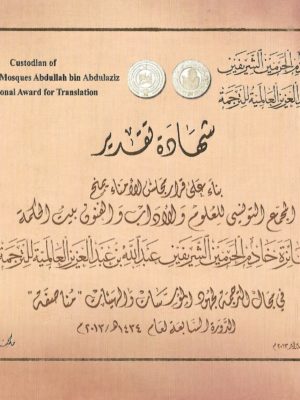 Custodian of
Mosques Abdullah bin Abdulaziz
onal Award for Translation
دم الحرمين الشريفين
العزيز العالمية للترجمة
شهادة تقدير
بناء على قرار مجلس الأمناء يمنح
المجمع التونسي للعلوم والآداب والفنون بيت الحكمة
ائزة خادم الحرمين الشريفين عبدالله بن عبدالعزيز العالمية للترجمة
في مجال الترجمة لجهود المؤسسات والهيئات "مناصفة"
الدورة السابعة لعام ١٤٣٤هـ/٢٠١٣م